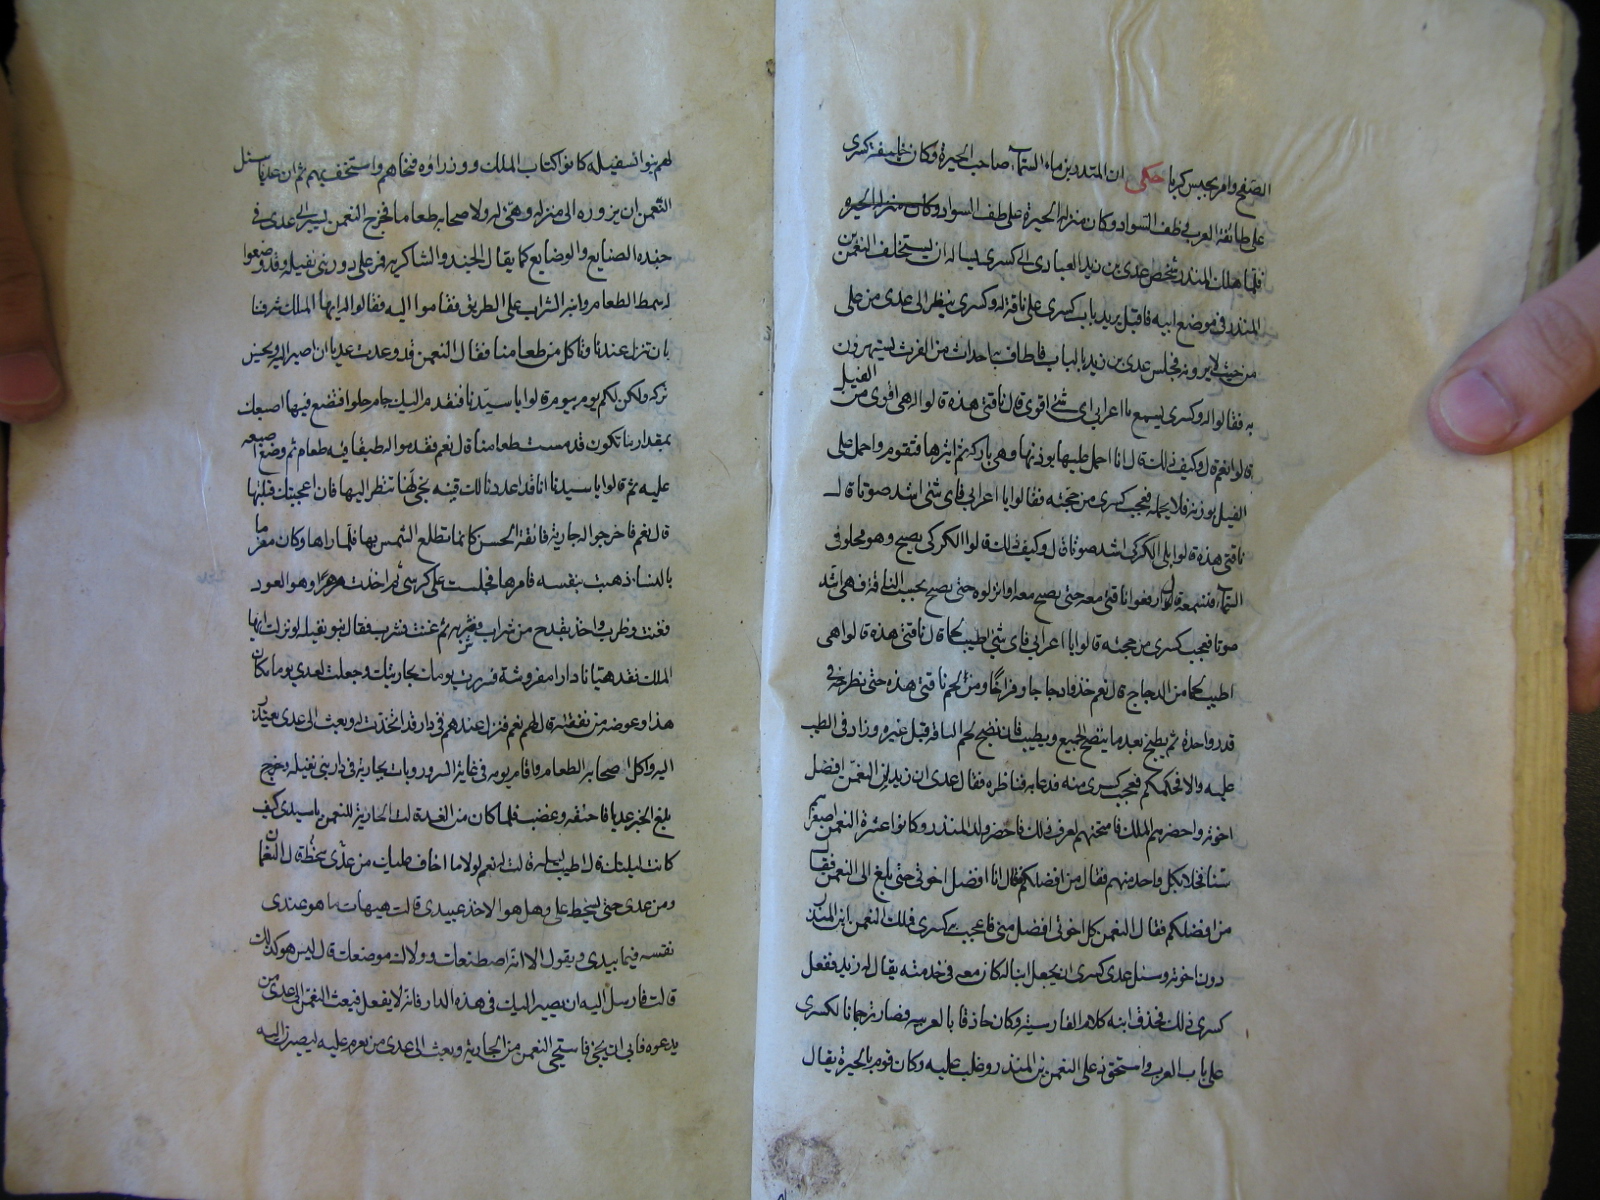 الصفح وامر بحبس كرما حكي ان المنذر بن ماء السماء صاحب الحيرة وكان خليفة كسرى
على طائفة العرب في طف السواد وكان منزله الحيرة على طف السواد وكان منزله الحيرة
فلما هلك المنذر شخص عدي بن زيد العبادي الى كسرى يساله ان يستخلف النعمن بن
المنذر في موضع ابيه فاقبل يريد باب كسرى على ناقة له وكسرى ينظر الى عدي من على
من حيث لا يرونه فجلس عدي بن زيد بالباب فاطاف به احداث من الفرس يستهزون
به فقالوا له وكسرى يسمع يا اعرابي اي شئ اقوى قال ناقتي هذه قالوا لهي اقوى من الفيل
قالوا نعم قال وكيف ذلك قال انا احمل عليها بوزنها وهي باركة ثم اثيرها فتقوم واحمل على
الفيل بوزنه فلا يحمله فعجب كسرى من حجته فقالوا يا اعرابي فاي شئ اشد صوتا قال
ناقتي هذه قالوا بلى الكركي اشد صوتا قال وكيف ذلك قالوا الكركي يصيح وهو محلق في
السماء فنسمعه قال ارفعوا ناقتي معه حتى يصيح معه او انزلوه حتى يصيح بجنب الناقة فهي اشد
صوتا فعجب كسرى من حجته قالوا يا اعرابي فاي شئ اطيب لحما قال ناقتي هذه قالوا هي
اطيب لحما من الدجاج قال نعم خذوا دجاجا وفراخا ومن لحم ناقتي هذه حتى نطرحه في
قدر واحدة ثم يطبخ بعد ما ينضج الجميع ويطيب فان نضج لحم الناقة قبل غيره وزاد في الطيب
عليه والا فحكمكم فعجب كسرى منه فدعا به فناظره فقال عدي ان زيد بن النعمن افضل
اخوته واحضرهم الملك فامتحنهم لعرف ذلك فاحضر ولد المنذر وكانوا عشرة النعمن اصغرهم
سنا فخلا بكل واحد منهم فقال من افضلكم فقال انا افضل اخوتي حتى بلغ الى النعمن فقال
من افضلكم فقال النعمن كل اخوتي افضل مني فاعجب به كسرى فملك النعمن ابن المنذر
دون اخوته وسئل عدي كسرى ان يجعل ابنا له كان معه في خدمته يقال له زيد ففعل
كسرى ذلك فحذق ابنه كلام الفارسية وكان حاذقا بالعربية فصار ترجمانا لكسرى
على باب العرب واستحق به على النعمن بن المنذر وغلب عليه وكان قوم بالحيرة يقال
لهم بنوا نفيله كانوا كتاب الملك ووزراؤه فنحاهم واستخف بهم ثم ان عديا سئل
النعمن ان يزوره الى منزله وهيئ له ولاصحابه طعاما فخرج النعمن يسير الى عدي في
جنده الصنايع والوضايع كما يقال الجند والشاكريه فمر على دور بني نفيله وقد وضعوا
له سمط الطعام وانية الشراب على الطريق فقاموا اليه فقالوا له ايها الملك شرفنا
بان تنزل عندنا وتاكل من طعامنا فقال النعمن قد وعدت عديا ان اصير اليه ويحين
تركه ولكن لكم يوم بيوم قالوا يا سيدنا فنقدم اليك جام حلوا فتضع فيها اصبعك
بمقدار بنا تكون قد مست طعامنا قال نعم فقدموا له طبقا فيه طعام ثم وضع اصبعه
عليه ثم قالوا يا سيدنا انا قد اعددنا لك قينه تنظر اليها فان اعجبتك قبلتها
قال نعم فاخرجوا له جارية فائقة الحسن كانما تطلع الشمس بها فلما راها وكان مغرما
بالنساء ذهبت بنفسه فامرها فجلست على كرسي ثم اخذت مزهرا وهو العود
فغنت وطرب واخذ بقدح من شراب فشربه ثم غنت وشرب فقال بنو نفيله لو نزلت ايها
الملك فقد هيئنا دارا مفروشة فسررت يومك بجاريتك وجعلت لعدي يوما مكان
هذا وعوضه من نفقته قال لهم نعم فنزل عندهم في دار قد اتخذت له وبعث الى عدي
اليه واكل اصحابه الطعام واقام يومه في غاية السرور وبات بجارية في دار بني نفيله
بلغ الخبر عديا فاحنقه وغضب فلما كان من الغد قالت الجارية للنعمن يا سيدي كيف
كانت ليلتك قال اطيب ليلة قالت نعم لولا ما اخاف عليك من عدي سخطه قال النعمان
ومن عدي حتى يسخط علي وهل هو الا احد عبيدي قالت هيهات ما هو عندي
نفسه فيما بيدي ويقول الا انه اصطنعك وولاك موضعك قال ليس هو كذلك
قالت فارسل اليه ان يصير اليك في هذه الدار فانه لا يفعل فبعث النعمن الى عدي من
يدعوه فابى ان يجئ فاستحى النعمن من الجارية وبعث الى عدي من يعزم عليه ليصيرن اليه